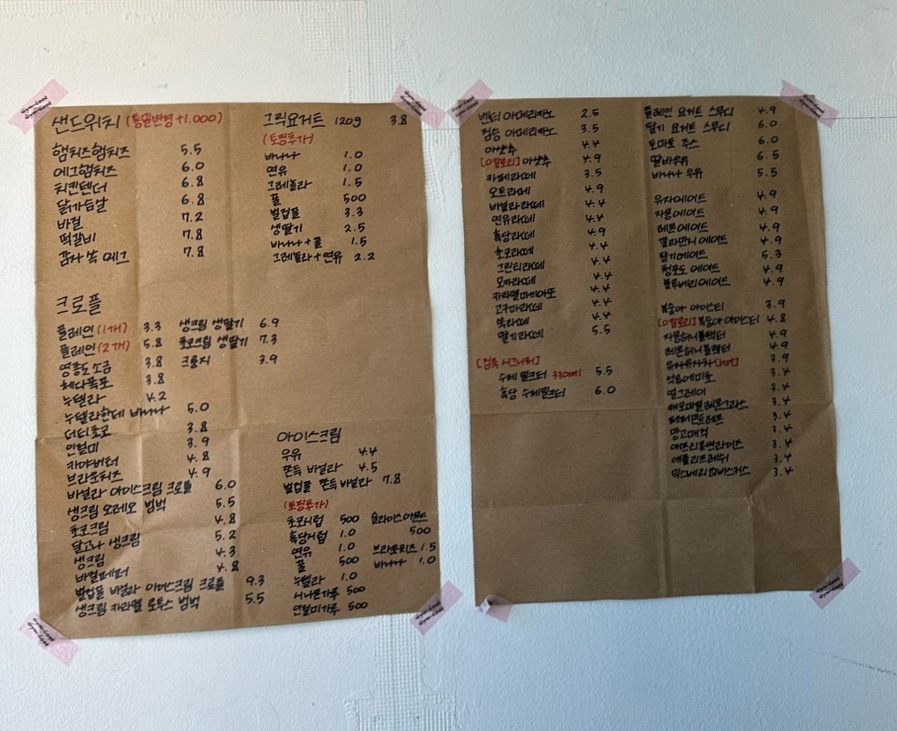 샌드위치 (통밀변경 +1.000)
햄치즈햄치즈 5.5
에그햄치즈 6.0
치킨텐더 6.8
닭가슴살 6.8
바질 7.2
떡갈비 7.8
감자 쏙 에그 7.8
크로플
플레인 (1개) 3.3
플레인 (2개) 5.8
영흥도 소금 3.8
체다폭포 3.8
누텔라 4.2
누텔라한테 바나나 5.0
더티초코 3.8
인절미 3.9
카야버터 4.8
브라운치즈 4.9
바닐라 아이스크림 크로플 6.0
생크림 오레오 범벅 5.5
초코크림 4.8
달고나 생크림 5.2
생크림 4.3
바질페퍼 4.8
벌집꿀 바닐라 아이스크림 크로플 9.3
생크림 카라멜 로투스 범벅 5.5
생크림 생딸기 6.9
초코크림 생딸기 7.3
크룽지 3.9
그릭요거트 120g 3.8
(토핑추가)
바나나 1.0
연유 1.0
그레놀라 1.5
꿀 500
벌집꿀 3.3
생딸기 2.5
바나나+꿀 1.5
그레놀라+연유 2.2
아이스크림
우유 4.4
쫀득 바닐라 4.5
벌집꿀 쫀득 바닐라 7.8
(토핑추가)
초코시럽 500
흑당시럽 1.0
연유 1.0
꿀 500
누텔라 1.0
시나몬가루 500
인절미가루 500
슬라이스아몬드 500
브라운치즈 1.5
바나나 1.0
빈티 아메리카노 2.5
점승 아메리카노 3.5
아샷추 4.4
[0칼로리] 아샷추 4.9
카페라떼 3.5
오트라떼 4.9
바닐라라떼 4.4
연유라떼 4.4
흑당라떼 4.9
초코라떼 4.4
그린티라떼 4.4
모카라떼 4.4
카라멜마끼아또 4.4
고구마라떼 4.4
쑥라떼 4.4
딸기라떼 5.5
수제 밀크티 330ml 5.5
흑당 수제밀크티 6.0
플레인 요거트 스무디 4.9
딸기 요거트 스무디 6.0
토마토 주스 6.0
딸바우유 6.5
바나나 우유 5.5
유자에이드 4.9
자몽에이드 4.9
레몬에이드 4.9
깔라만시 에이드 4.9
딸기에이드 5.3
청포도 에이드 4.9
블루베리에이드 4.9
복숭아 아이스티 3.9
[0칼로리] 복숭아 아이스티 4.8
자몽허니블랙티 4.9
레몬허니블랙티 4.9
유자유자차 [hot] 3.9
3.4
얼그레이 3.4
캐모마일레몬그라스 3.4
페퍼민트레몬 3.4
망고매직 3.4
애프리콧썬라이즈 3.4
애플리프레쉬 3.4
믹스베리 3.4